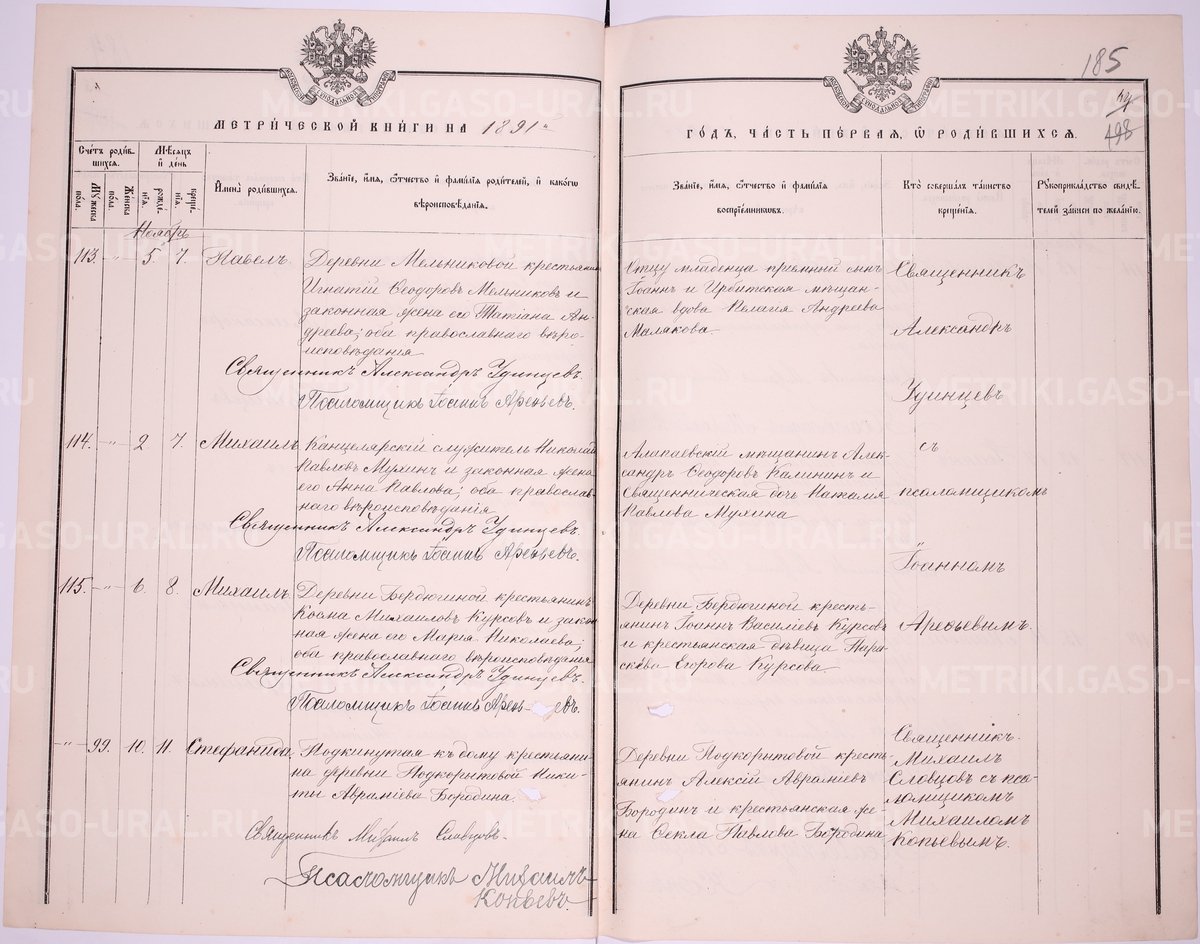 185
МЕТРИ́ЧЕСКОЙ КНИ́ГИ НА 1891й
ГО́ДЪ, ЧА́СТЬ ПЕ́РВАЯ, Ѡ РОДИ́ВШИХСѦ.
498
Сче́тъ роди́в-
шихся.
Мѣ́сяцъ
и де́нь
Му́жеска
пола.
Же́нска
по́ла.
рожде́-
нїя.
креще́-
нїя.
И́мена роди́вшихся.
Зва́нїе, и́мя, ѻ҆́тчество и҆ фами́лїя роди́телей, и҆ како́гѡ
вѣроисповѣ́данїя.
Зва́нїе, и́мя, ѻ҆́тчество и҆ фами́лїя
воспрїе́мникѡвъ.
Кто̀ соверша́лъ та́инство
креще́нїя.
Рꙋкоприкла́дство свидѣ́-
телей за́писи по жела́нїю.
Ноябрь
113. " 5. 7. Павелъ.
Деревни Мельниковой крестьянинъ
Игнатій Ѳеодоровъ Мельниковъ и
законная жена его Татіана Ан-
дреева; оба православнаго вѣро-
исповѣданія
Священникъ Александръ Удинцевъ.
Псаломщикъ Іоаннъ Арефьевъ.
Отцу младенца пріемный сынъ
Іоаннъ и Ирбитская мѣщан-
ская вдова Пелагія Андреева
Малякова.
Священникъ
Александръ
Удинцевъ
114. " 2. 7. Михаилъ
Канцелярскій служитель Николай
Павловъ Мухинъ и законная жена
его Анна Павлова; оба православ-
наго вѣроисповѣданія
Священникъ Александръ Удинцевъ.
Псаломщикъ Іоаннъ Арефьевъ.
Алапаевскій мѣщанинъ Алек-
сандръ Ѳеодоровъ Калининъ и
Священническая дочь Наталия
Павлова Мухина
съ
псаломщикомъ
Іоанномъ
115. " 6. 8. Михаилъ.
Деревни Бердюгиной крестьянинъ
Косма Михаиловъ Курсовъ и закон-
ная жена его Марія Николаева;
оба православнаго вѣроисповѣданія
Священникъ Александръ Удинцевъ.
Псаломщикъ Іоаннъ Арефьевъ.
Деревни Бердюгиной кресть-
янинъ Іоаннъ Василіевъ Курсовъ
и крестьянская дѣвица Пара-
скева Егорова Курсова.
Арефьевымъ.
" 99. 10. 11. Стефанида.
Подкинутая къ дому крестьяни-
на деревни Подкорытовой Ники-
ты Авраміева Бородина.
Священникъ Михаилъ Словцовъ.
Псаломщикъ Михаилъ
Копьевъ.
Деревни Подкорытовой кресть-
янинъ Алексій Авраміевъ
Бородинъ и крестьянская же-
на Ѳекла Павлова Бородина
Священникъ
Михаилъ
Словцовъ съ пса-
ломщикомъ
Михаиломъ
Копьевымъ.
METRIKI.GASO-URAL.RU